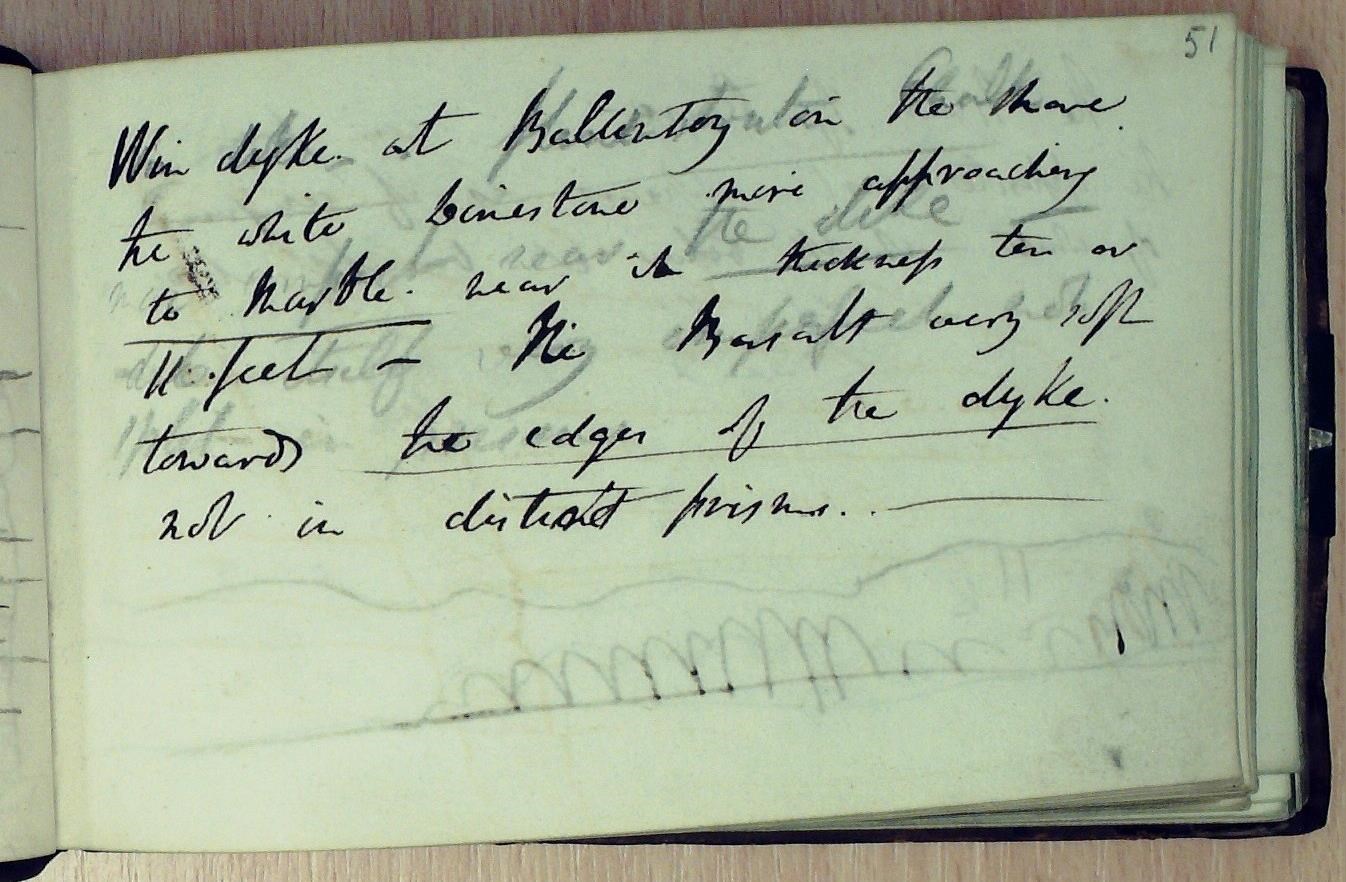 51
Win dyke. at Ballintoy on the shore.
the white Limestone more approaching
to Marble. near it thickness ten or
11. feet – The Basalt very soft
towards the edges of the dyke.
not in distinct prisms. –